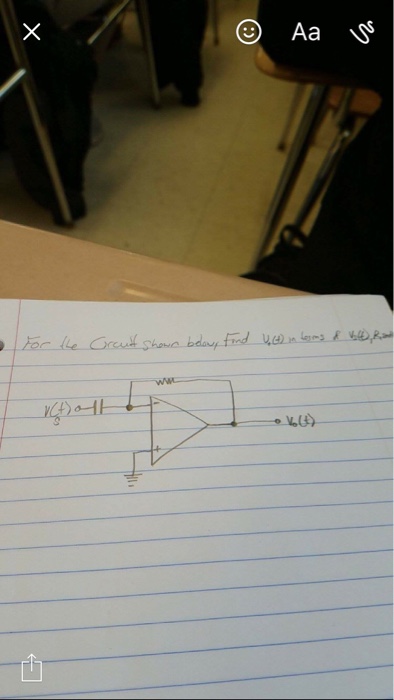 Aa
For the Circuit shown below, Find Vo(t) in terms of Vs(t), R, and
Vs(t)
-
+
Vo(t)